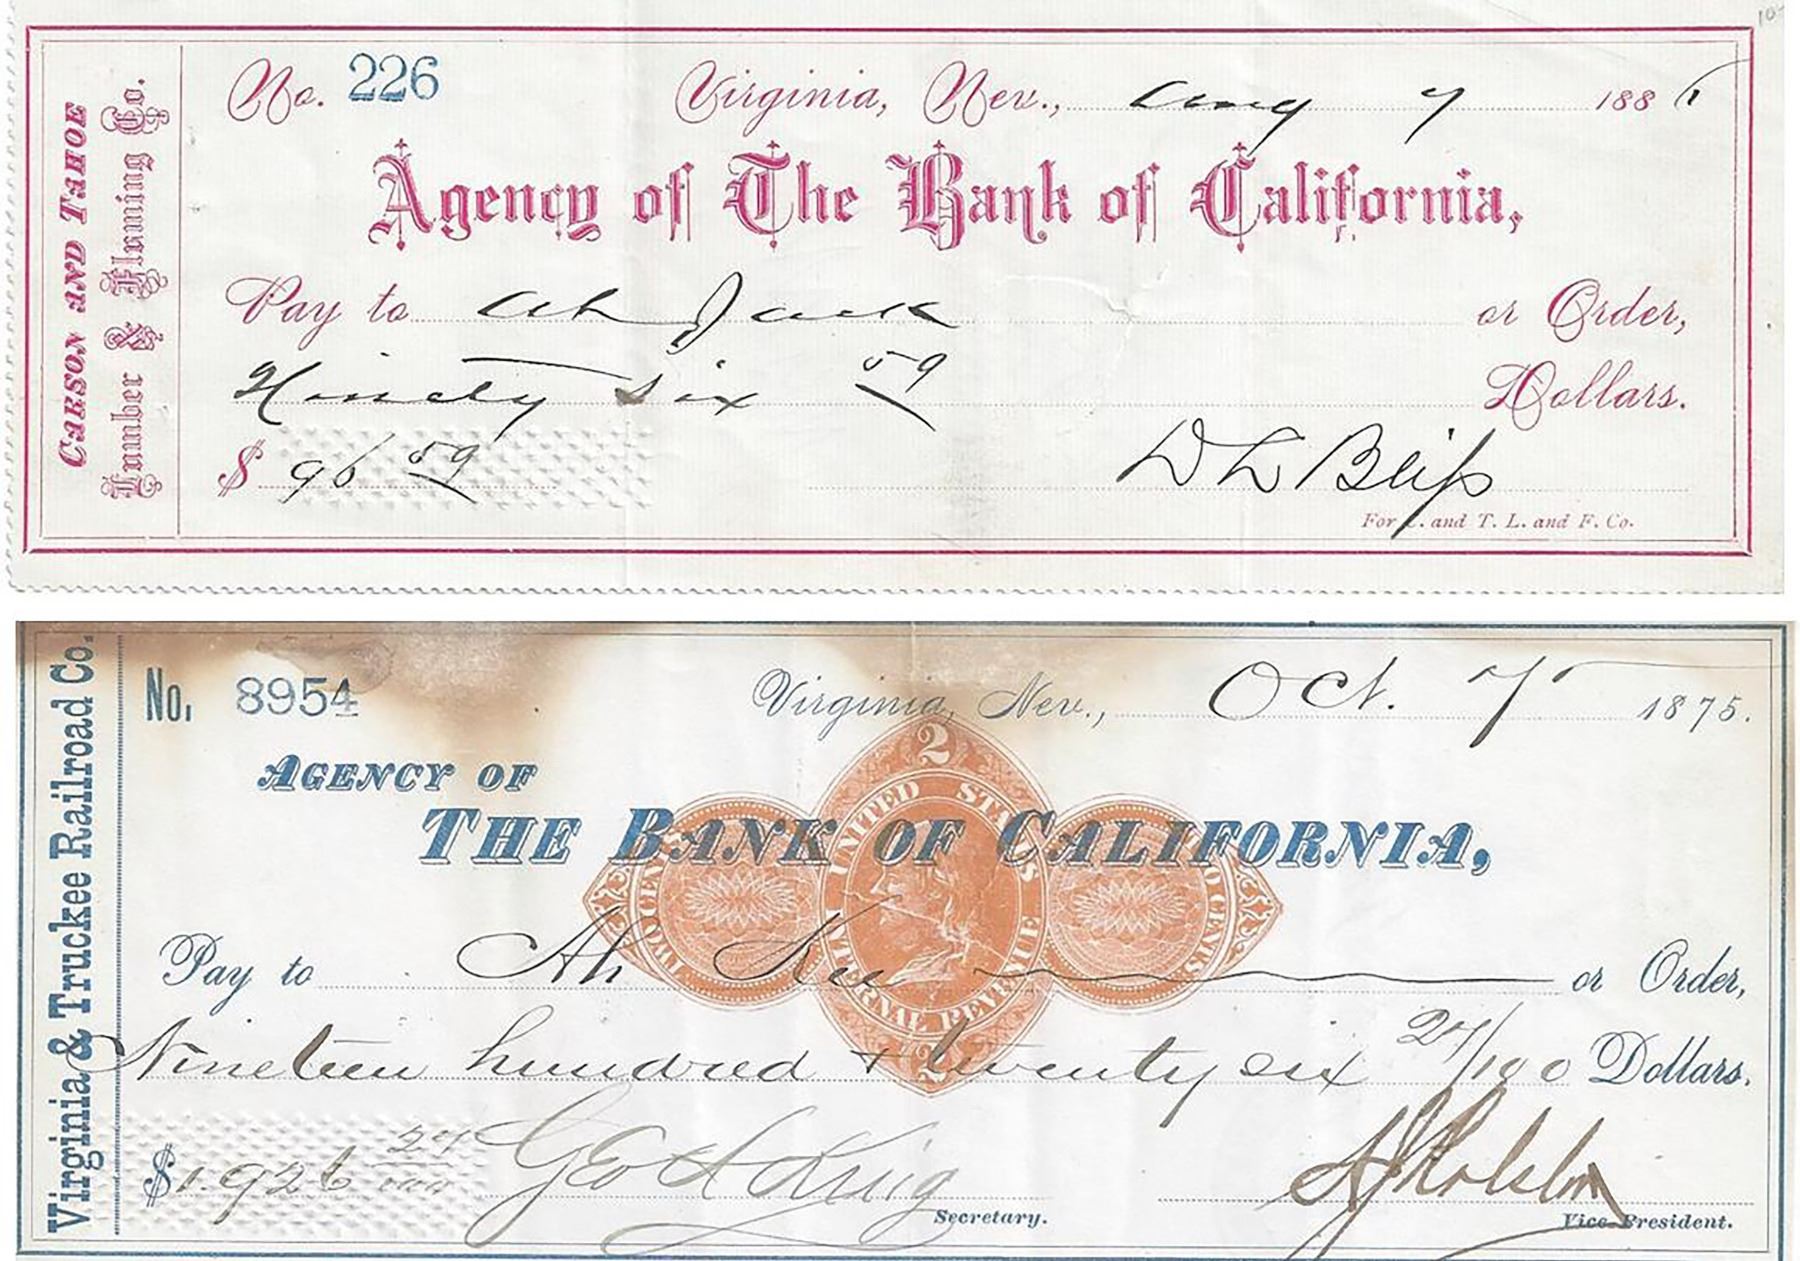 CARSON AND TAHOE
Lumber & Fluming Co.
No. 226
Virginia, Nev., Aug 7 188
Agency of The Bank of California,
Pay to Ah Jack or Order,
Ninety six 59 Dollars.
$ 96 59
D L Bliss
For C. and T. L. and F. Co.
Virginia & Truckee Railroad Co.
No. 8954
Virginia, Nev., Oct. 7 1875.
AGENCY OF
THE BANK OF CALIFORNIA,
2
UNITED STATES
INTERNAL REVENUE
2
TWO CENTS
Pay to Ah Kee or Order,
Nineteen hundred & twenty six 24/100 Dollars.
$1.926 24
Secretary.
Vice-President.